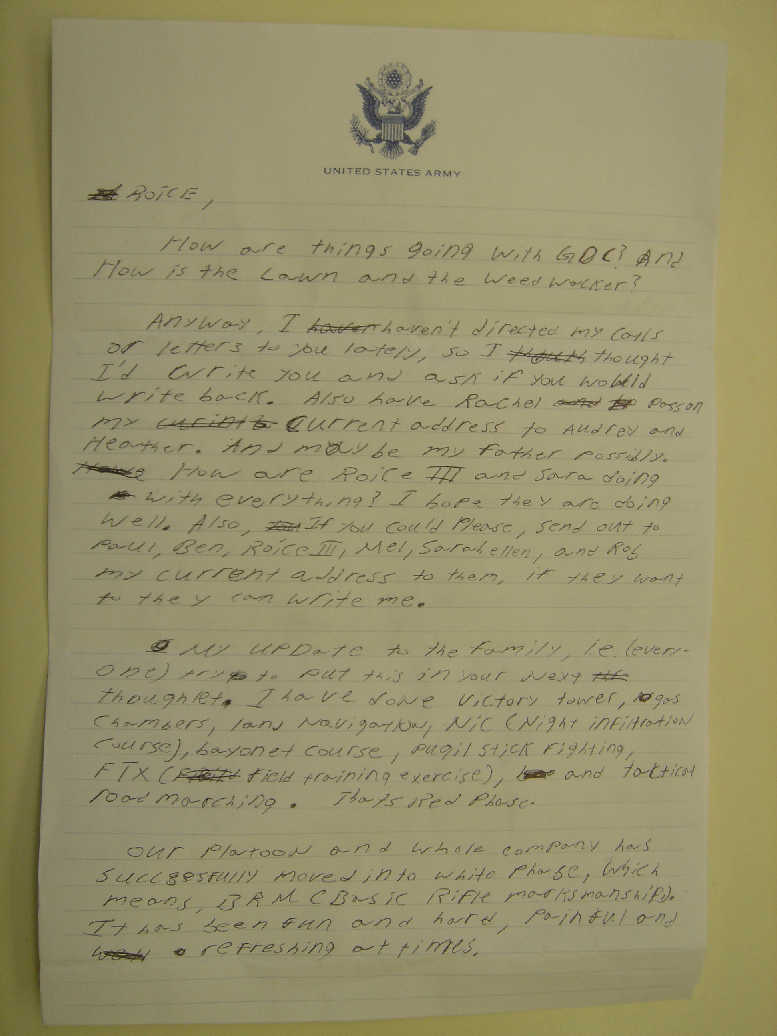 UNITED STATES ARMY
ROICE,
How are things going with GDC? And
How is the Lawn and the weed wacker?
Anyway, I haven't directed my calls
or letters to you lately, so I thought
I'd write you and ask if you would
write back. Also have Rachel pass on
my current address to Audrey and
Heather. And maybe my father possibly.
How are Roice III and Sara doing
with everything? I hope they are doing
well. Also, If you could Please, send out to
Paul, Ben, Roice III, Mel, Sarahellen, and Rob
my current address to them, if they want
to they can write me.
My UPDate to the family, i.e. (every-
one) try to put this in your next
thoughtlet. I have done victory tower, gas
chambers, land navigation, NIC (Night infiltration
course), bayonet course, pugil stick fighting,
FTX (field training exercise), and tactical
road marching. Thats Red Phase.
Our Platoon and whole company has
successfully moved into white Phase, which
means, BRM (Basic Rifle marksmanship).
It has been fun and hard, painful and
refreshing at times.